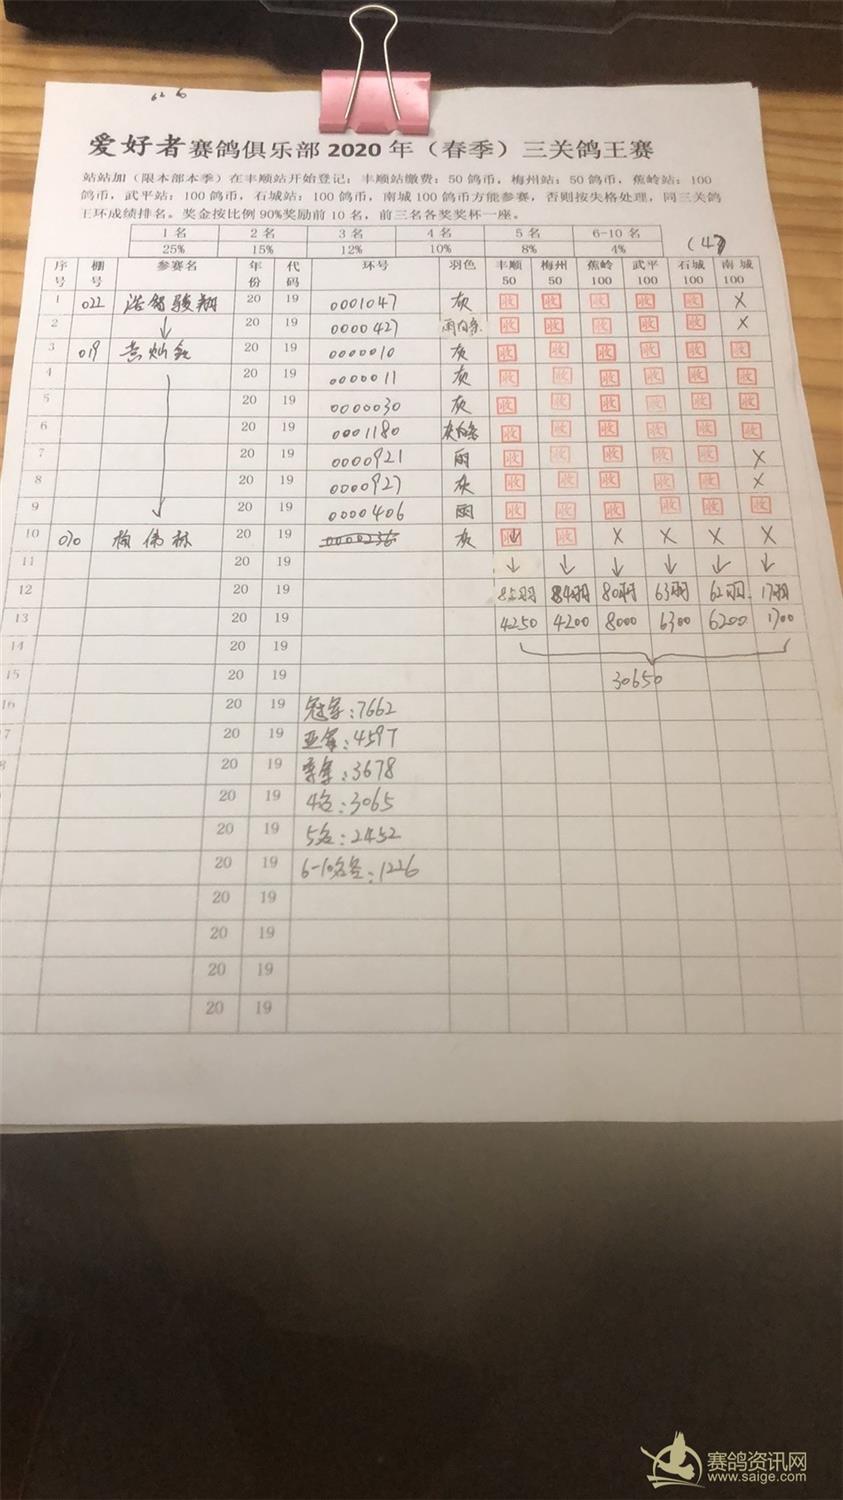 626
爱好者赛鸽俱乐部2020年（春季）三关鸽王赛
站站加（限本部本季）在丰顺站开始登记；丰顺站缴费：50鸽币，梅州站：50鸽币，蕉岭站：100
鸽币，武平站：100鸽币，石城站：100鸽币，南城100鸽币方能参赛，否则按失格处理，同三关鸽
王环成绩排名。奖金按比例90%奖励前10名，前三名各奖奖杯一座。
1名 2名 3名 4名 5名 6-10名
25% 15% 12% 10% 8% 4% (4)
序号 棚号 参赛名 年份 代码 环号 羽色 丰顺50 梅州50 蕉岭100 武平100 石城100 南城100
1 022 浩驾骏翔 20 19 0001047 灰 收 收 收 收 收 X
2 ↓ 20 19 0000427 雨白条 收 收 收 收 收 X
3 019 黄灿鑫 20 19 0000010 灰 收 收 收 收 收 收
4 20 19 0000011 灰 收 收 收 收 收 收
5 20 19 0000030 灰 收 收 收 收 收 收
6 20 19 0001180 灰白条 收 收 收 收 收 收
7 20 19 0000921 雨 收 收 收 收 收 X
8 20 19 0000927 灰 收 收 收 收 收 X
9 ↓ 20 19 0000406 雨 收 收 收 收 收 收
10 030 梅伟林 20 19 0000236 灰 收 收 X X X X
11 20 19 ↓ ↓ ↓ ↓ ↓ ↓
12 20 19 85羽 84羽 80羽 63羽 62羽 17羽
13 20 19 4250 4200 8000 6300 6200 1700
14 20 19
15 20 19 30650
16 20 19 冠军：7662
17 20 19 亚军：4597
8 20 19 季军：3678
20 19 4名：3065
20 19 5名：2452
20 19 6-10名各：1226
20 19
20 19
20 19
20 19
赛鸽资讯网
www.saige.com